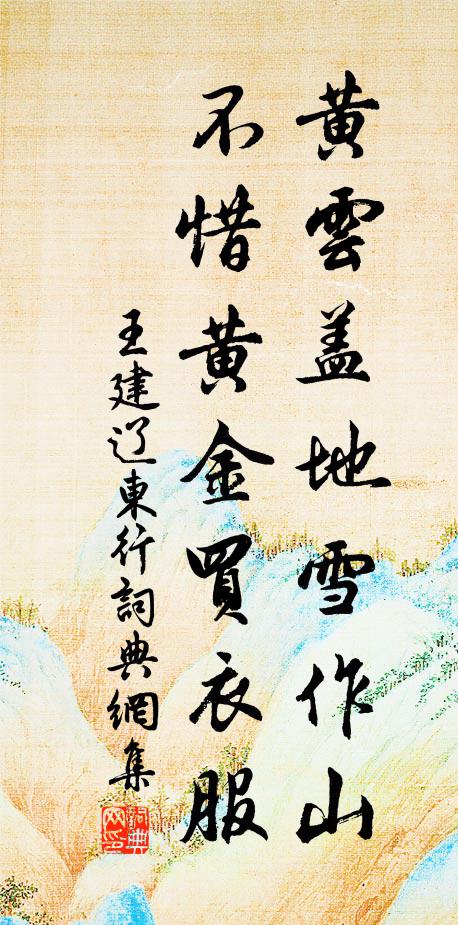 黃雲蓋地雪作山
不惜黃金買衣服
王建辽東行詞典網集
詞典